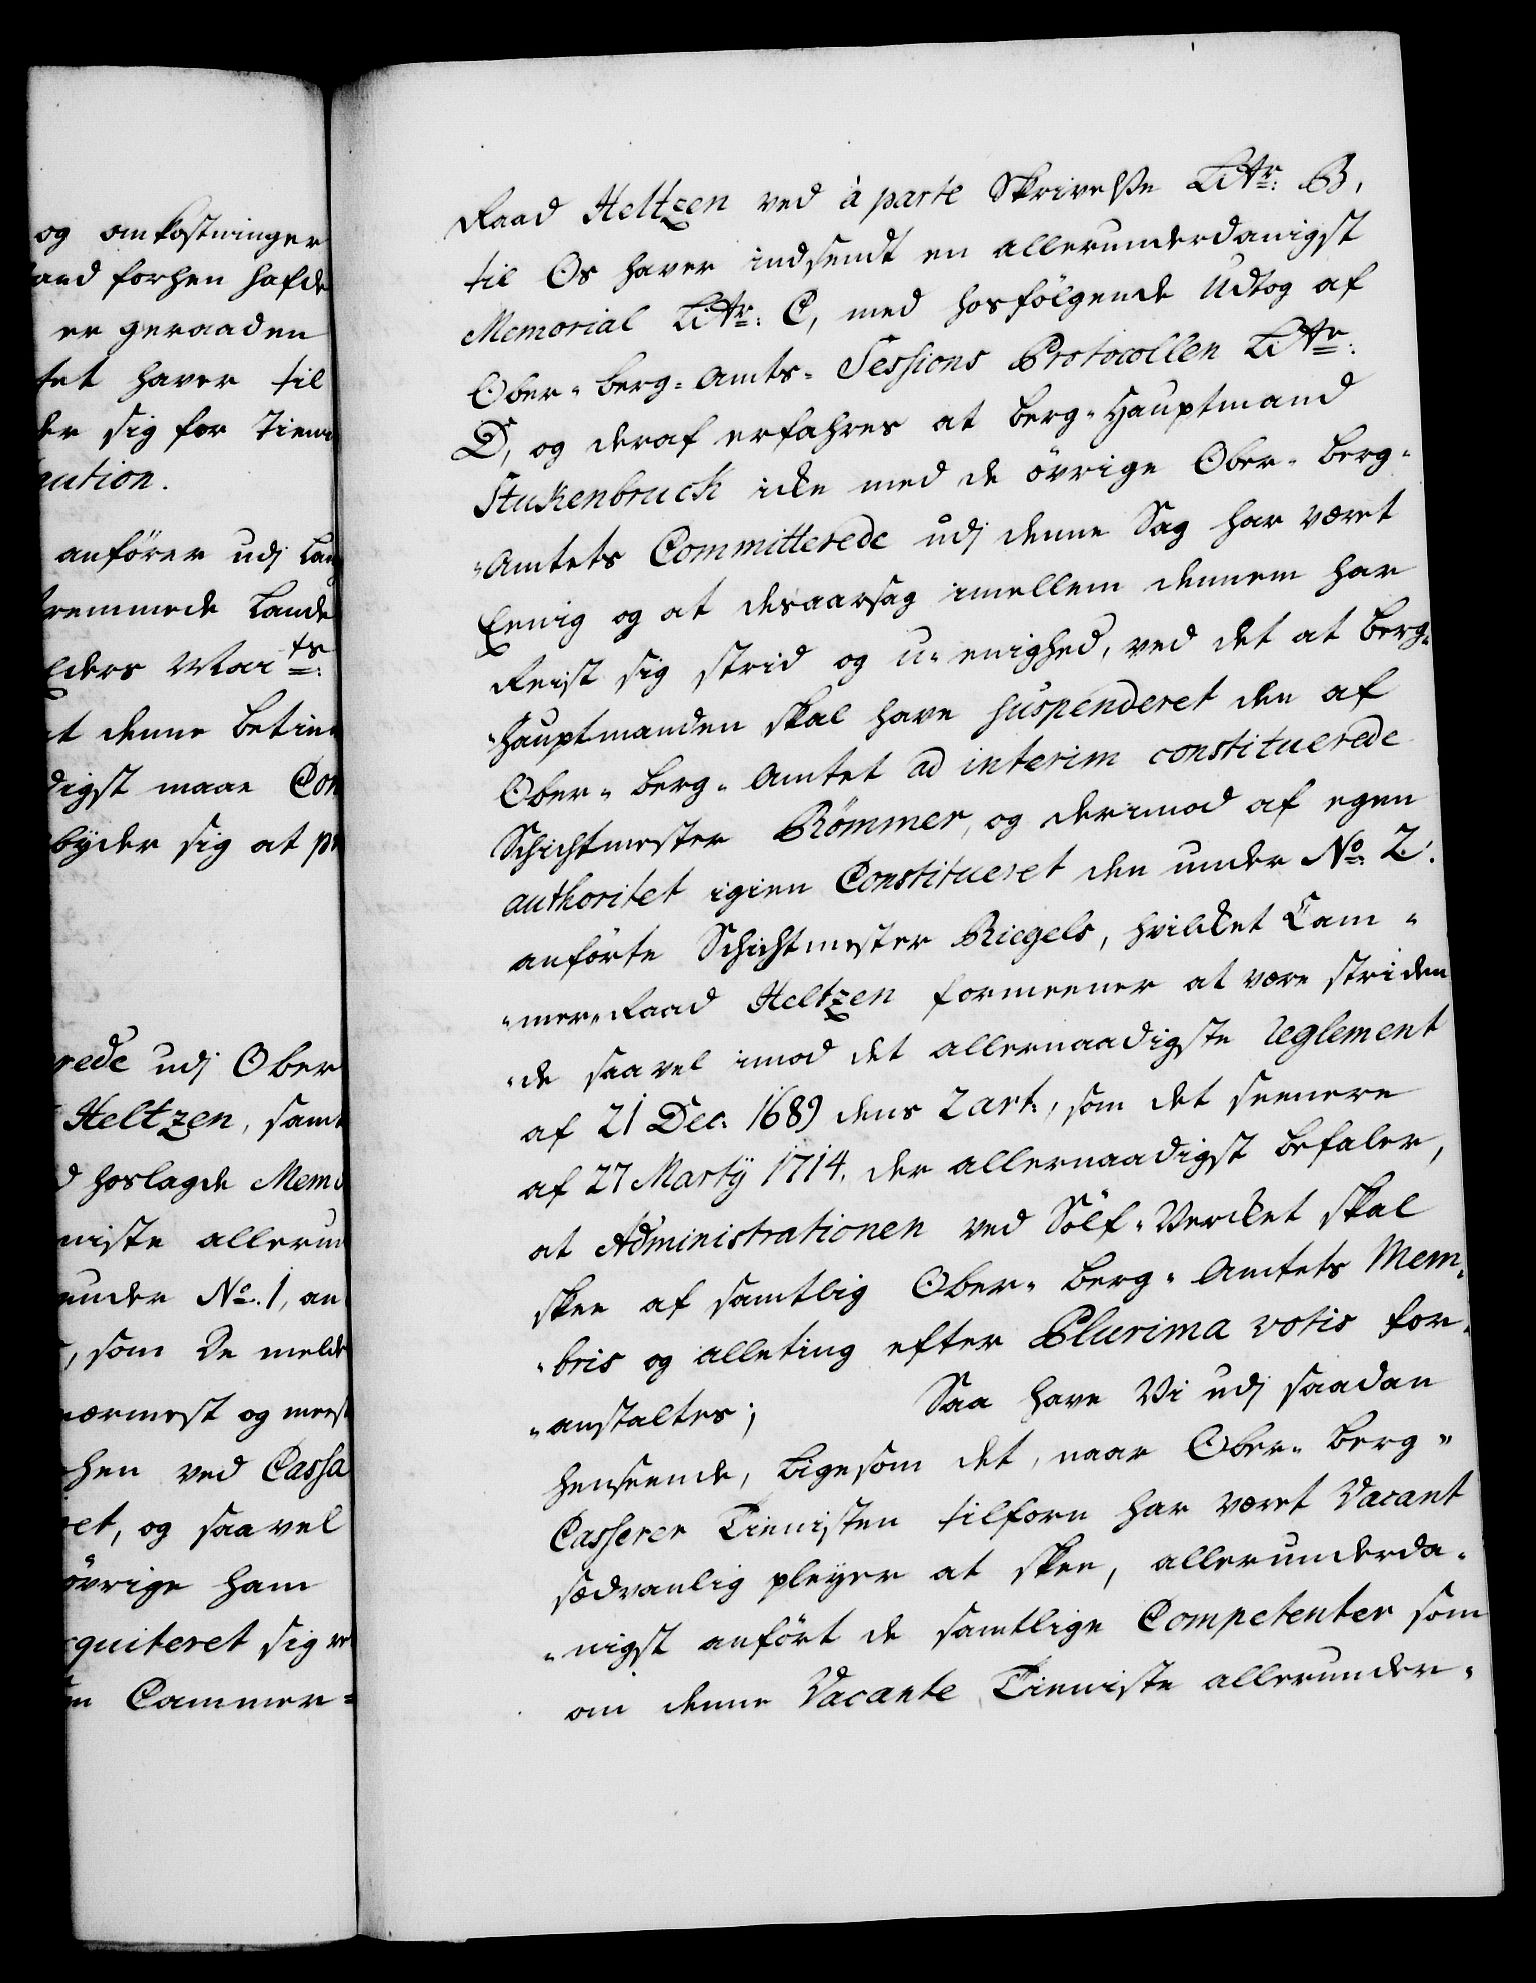 og omkostninger
and forhen hafde
er geraaden
tet haver til
der sig for Tien
aution.
anfører udj Lan
fremmede Lande
lders Mai ts:
at denne betien
digst maae Con
byder sig at pr
rede udj Ober
Heltzen, samt
d hoslagde Memo
niste allerun
under No. 1, an
, som De melde
nærmest og meest
hen ved Cassa
et, og saavel
övrige ham
cquiteret sig ve
en Cammer=
Raad Heltzen ved à parte Skrivelse Littr: B,
til Os haver indsendt en allerunderdanigst
Memorial Littr: C, med hosfölgende Udtog af
Ober= Berg= Amts= Sessions Protocollen Littr:
D, og deraf erfahres at Berg= Hauptmand
Stukenbruck icke med de övrige Ober= Berg=
=Amtets Committerede udj denne Sag har været
Eenig og at desaarsag imellem dennem har
Reist sig strid og u= enighed, ved det at Berg=
=Hauptmanden skal have suspenderet den af
Ober= Berg= Amtet ad interim constituerede
Schichtmester Römmer, og derimod af egen
authoritet igien Constitueret den under No: 2.
anförte Schichtmester Riegels, hvilcket Cam=
=mer=Raad Heltzen formeener at være striden
=de saavel imod det allernaadigste Reglement
af 21 Dec: 1689 dens 2 art:, som det seenere
af 27 Martÿ 1714. der allernaadigst befaler,
at Administrationen ved Sölf= Vercket skal
skee af samtlig Ober= Berg= Amtets Mem=
=bris og alleting efter Plurima votis for=
=anstaltes; Saa have Vi udj saadan
henseende, ligesom det, naar Ober= Berg=
Casserer Tienisten tilforn har været Vacant
sædvanlig pleyer at skee, allerunderda=
=nigst anfört de samtlige Competenter som
om denne Vacante Tieniste allerunder=